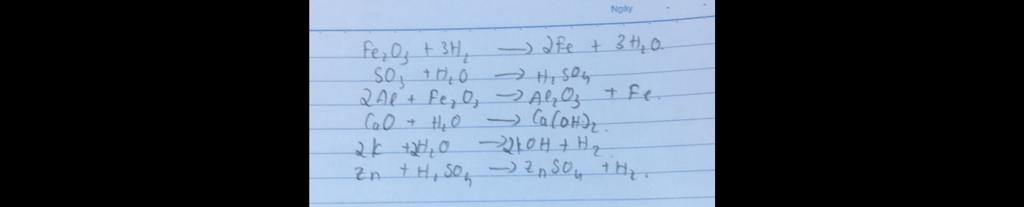 Ngày
Fe₂O₃ + 3H₂ → 2Fe + 3H₂O.
SO₃ + H₂O → H₂SO₄
2Al + Fe₂O₃ → Al₂O₃ + Fe.
CaO + H₂O → Ca(OH)₂.
2K + 2H₂O → 2KOH + H₂
Zn + H₂SO₄ → ZnSO₄ + H₂.